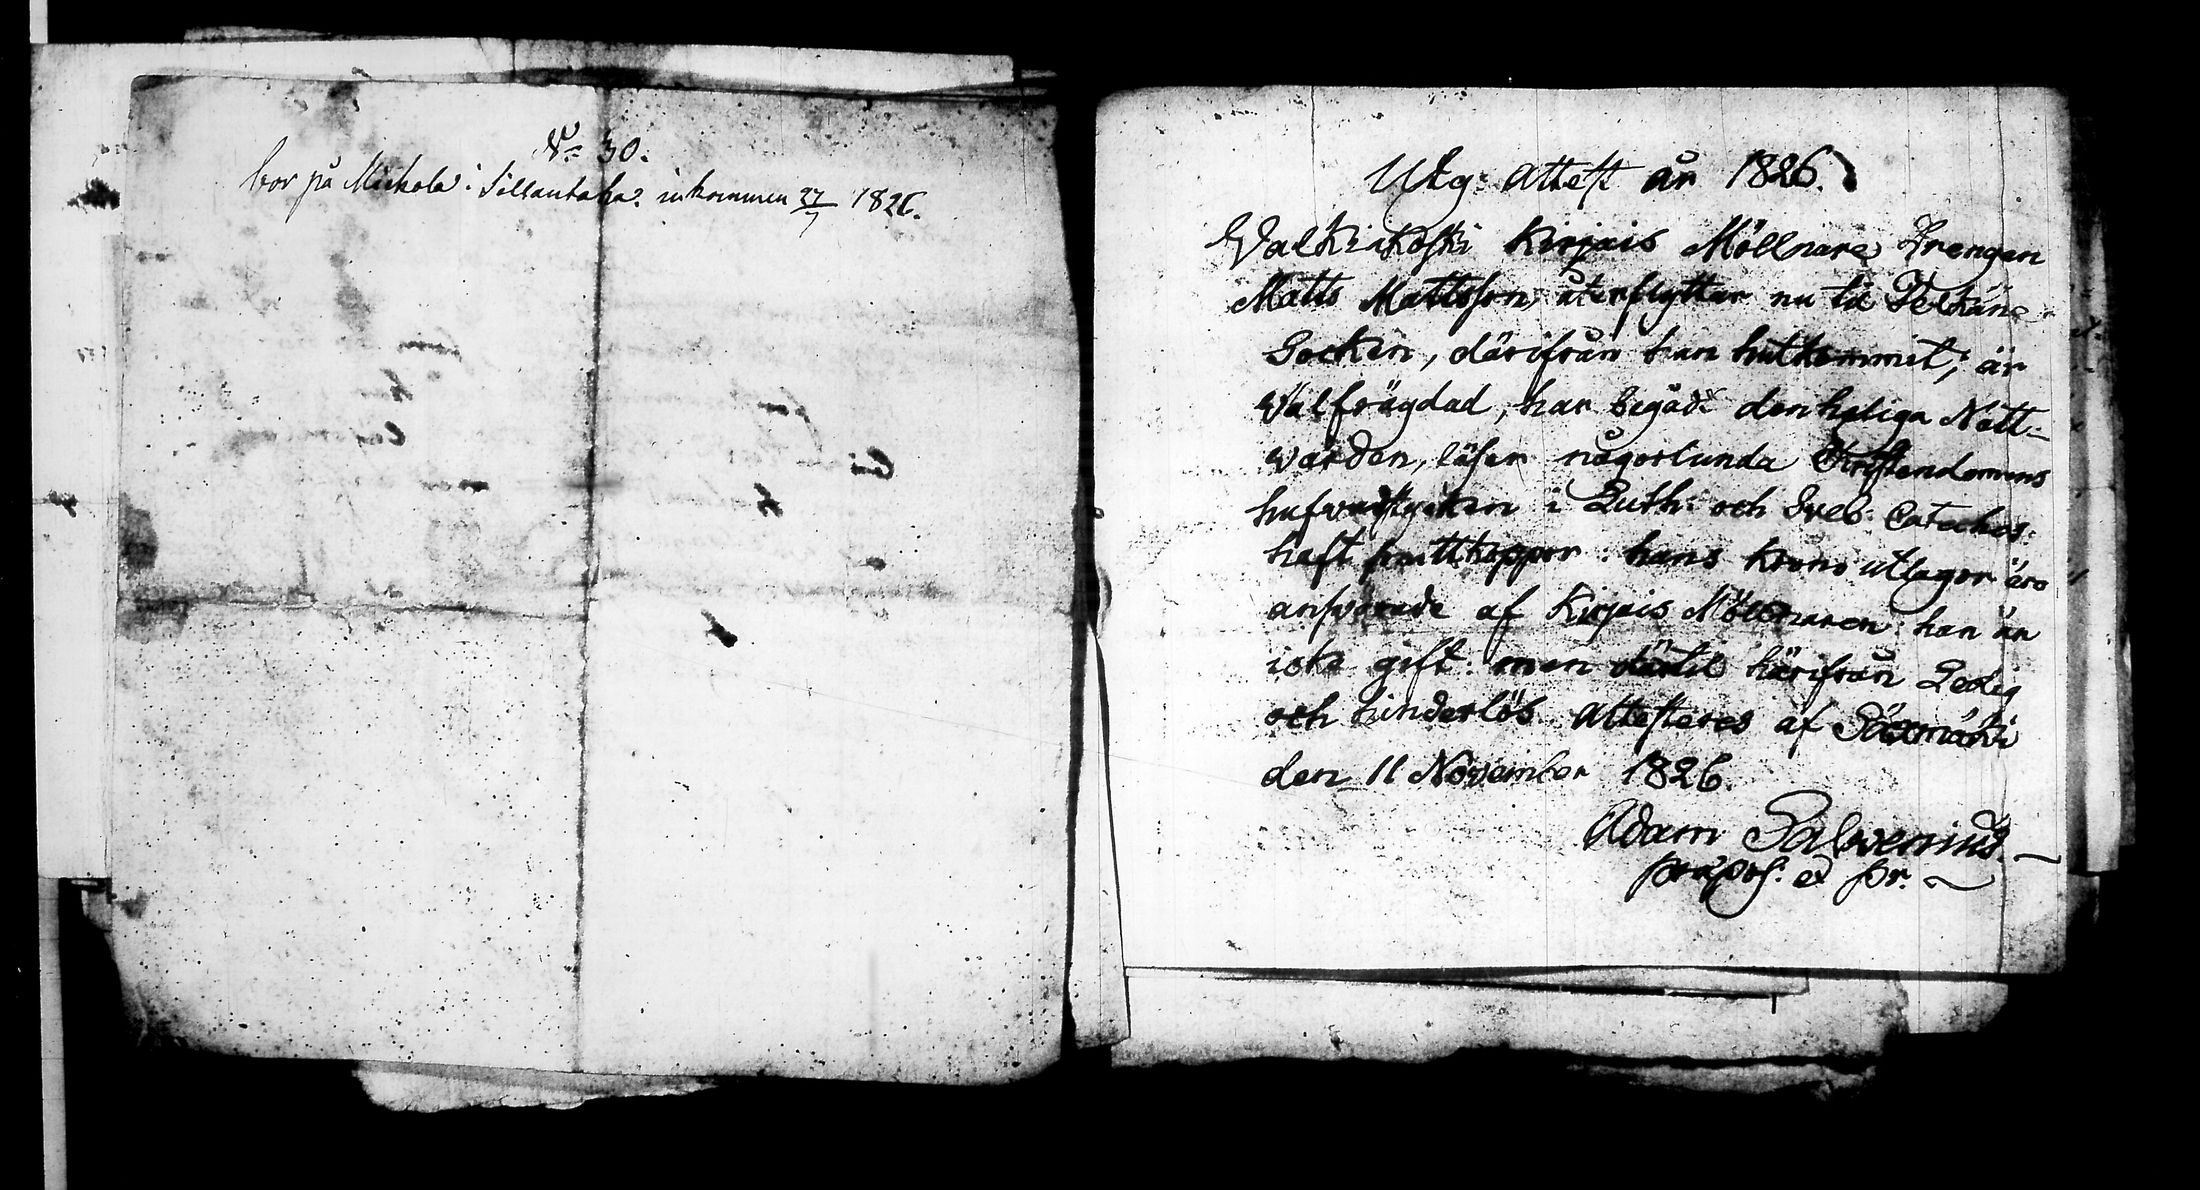 No 30.
bor på Mickola i Sillantaka. inkommen 27/7 1826.
Utg: attest år 1826.
Walkiakoski Kirjais Möllnare Drengen
Matts Mattsson, återflyttar nu til Pelkäne
Socken, därifrån han hitkommit; är
Walfrägdad, har begådt den heliga Natt-
warden, läser någorlunda Christendomens
hufvudstycken i Luth: och Sveb: Cateches:
haft smittkoppor: hans krono utlagor äro
answarade af Kirjais Möllnaren: han är
icke gift: men härifrån Ledig
och hinderlös attesteres af Säxmäki
den 11 November 1826.
Adam Salvenius
præpos: et p:r.